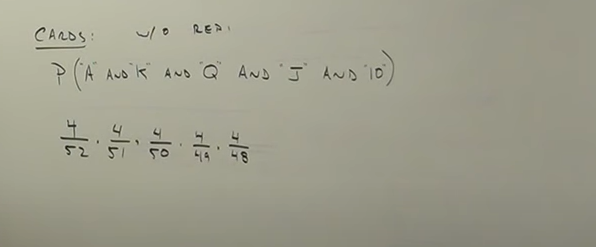 CARDS: w/o REP.
P("A" AND "K" AND "Q" AND "J" AND "10")
4/52 · 4/51 · 4/50 · 4/49 · 4/48